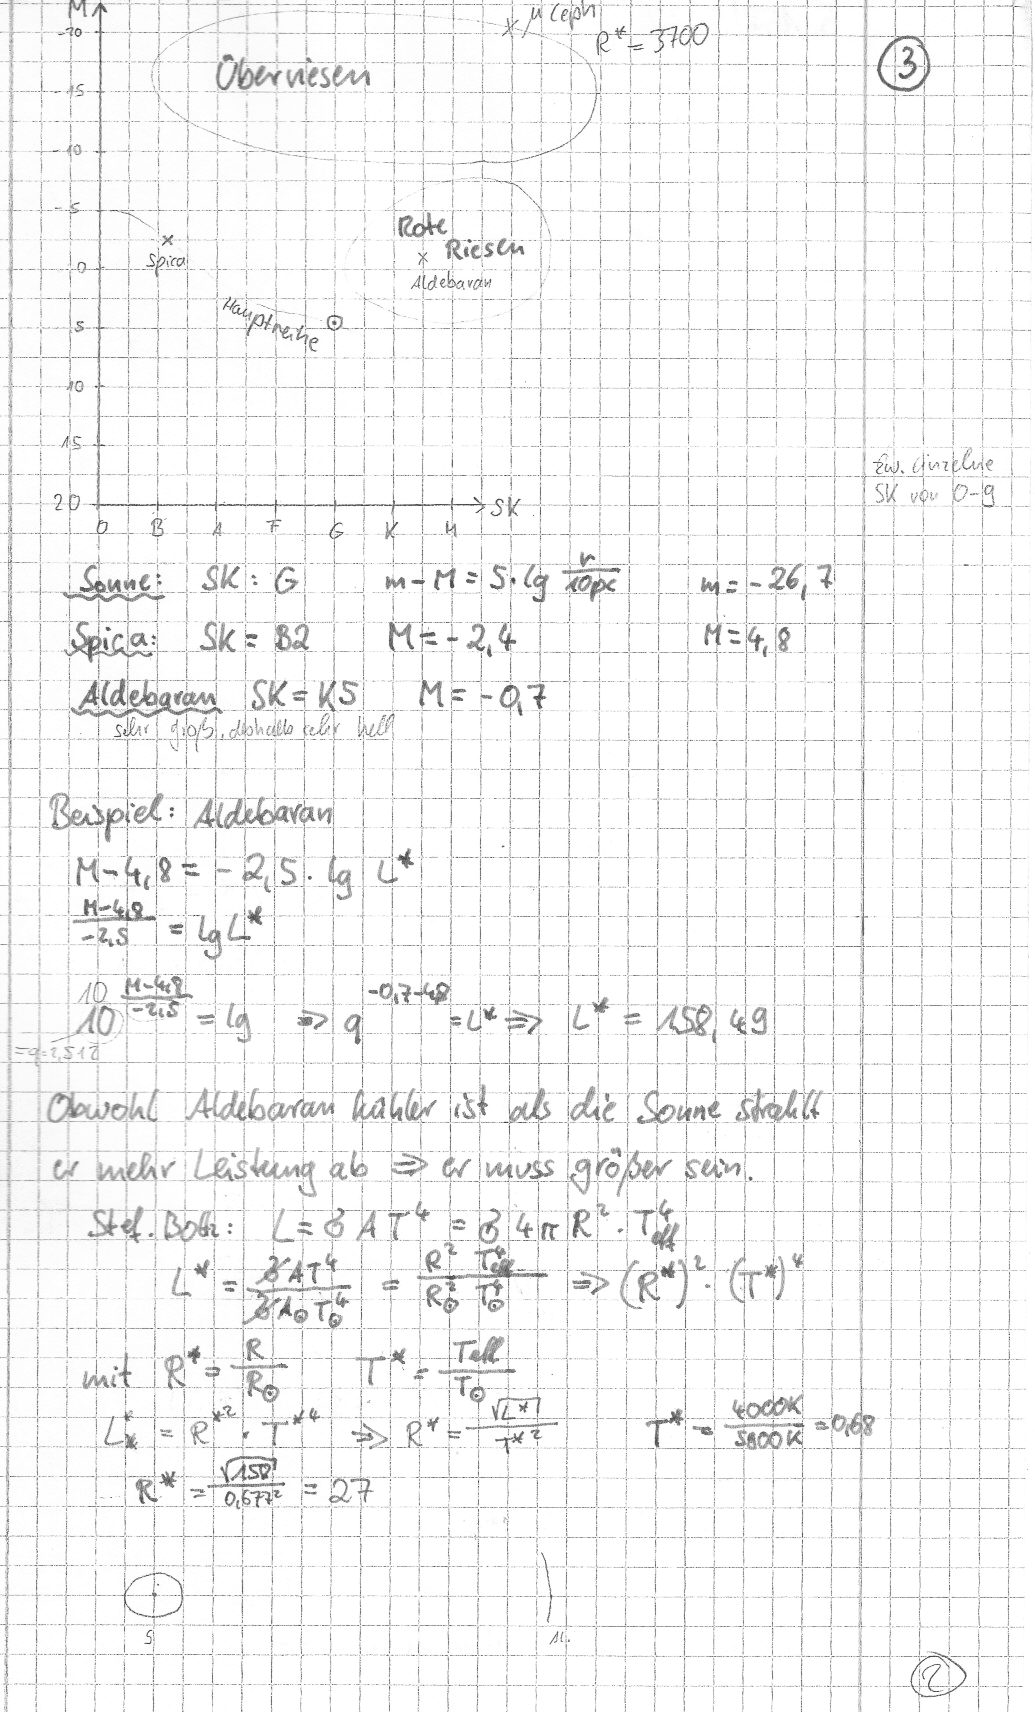 M
-20
μ Ceph
R* = 3700
3
Überriesen
-15
-10
-5
Rote
Riesen
Spica
0
Aldebaran
Hauptreihe
5
10
15
Zw. einzelne
SK von 0-9
20
SK
O B A F G K M
Sonne: SK: G m-M = 5·lg r/10pc m = -26,7
Spica: SK = B2 M = -2,4 M = 4,8
Aldebaran SK = K5 M = -0,7
sehr groß, deshalb sehr hell
Beispiel: Aldebaran
M-4,8 = -2,5·lg L*
M-4,8/-2,5 = lg L*
10 10^(M-4,8/-2,5) = lg ⇒ q^(-0,7-4,8) = L* ⇒ L* = 158,49
=q=2,512
Obwohl Aldebaran kühler ist als die Sonne strahlt
er mehr Leistung ab ⇒ er muss größer sein.
Stef. Boltz: L = σ A T⁴ = σ 4π R² · T⁴eff
L* = σAT⁴/σA☉T☉⁴ = R² T⁴eff/R☉² T☉⁴ ⇒ (R*)² · (T*)⁴
mit R* = R/R☉ T* = Teff/T☉
L* = R*² · T*⁴ ⇒ R* = √L*/T*² T* = 4000K/5900K = 0,68
R* = √158/0,677² = 27
2